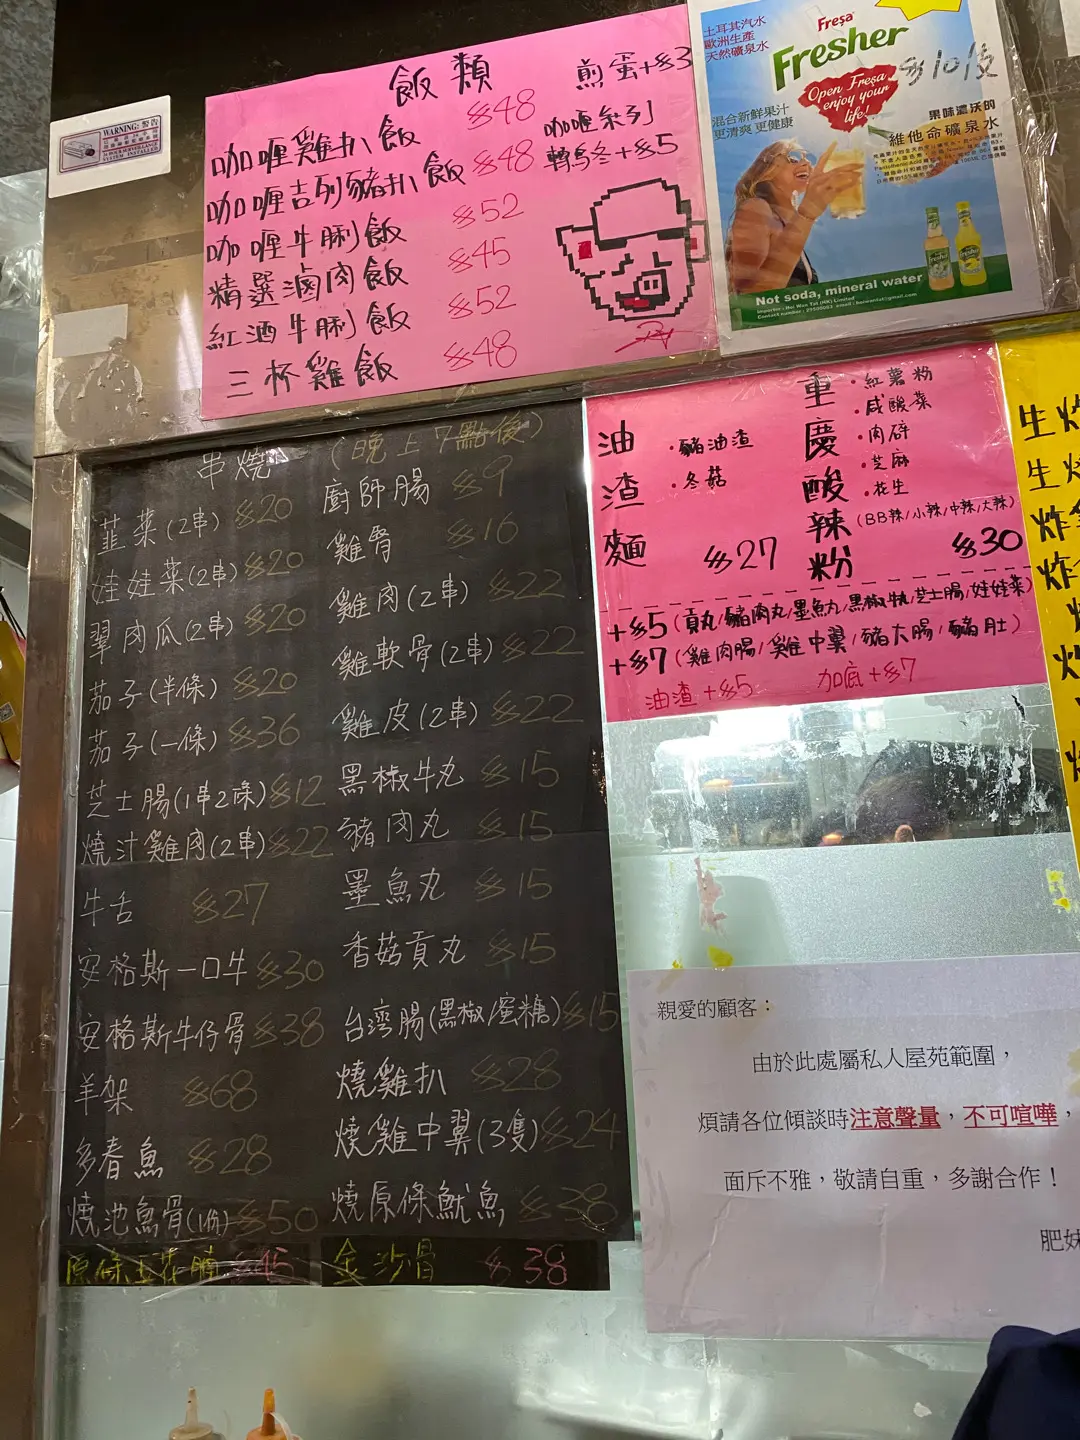 WARNING: 警告
飯類
咖喱雞扒飯 $48
咖喱吉列豬扒飯 $48
咖喱牛脷飯 $52
精選滷肉飯 $45
紅酒牛脷飯 $52
三杯雞飯 $48
煎蛋+$3
咖喱系列
轉烏冬+$5
土耳其汽水
歐洲生產
天然礦泉水
Fresa
Fresher
$10/支
Open Fresa
enjoy your
life!
混合新鮮果汁
更清爽 更健康
果味濃沃的
維他命礦泉水
Not soda, mineral water
串燒 (晚上7點後)
韮菜(2串) $20
娃娃菜(2串) $20
翠肉瓜(2串) $20
茄子(半條) $20
茄子(一條) $36
芝士腸(1串2條) $12
燒汁雞肉(2串) $22
牛舌 $27
安格斯一口牛 $30
安格斯牛仔骨 $38
羊架 $68
多春魚 $28
燒池魚骨(1份) $50
原條五花腩 $45
廚師腸 $9
雞腎 $16
雞肉(2串) $22
雞軟骨(2串) $22
雞皮(2串) $22
黑椒牛丸 $15
豬肉丸 $15
墨魚丸 $15
香菇貢丸 $15
台灣腸(黑椒/蜜糖) $15
燒雞扒 $28
燒雞中翼(3隻) $24
燒原條魷魚 $38
金沙骨 $38
油渣麵 $27
·豬油渣
·冬菇
重慶酸辣粉 $30
·紅薯粉
·咸酸菜
·肉碎
·芝麻
·花生
(BB辣/小辣/中辣/大辣)
+$5(貢丸/豬肉丸/墨魚丸/黑椒牛丸/芝士腸/娃娃菜)
+$7(雞肉腸/雞中翼/豬大腸/豬肚)
油渣+$5 加底+$7
生
生
炸
炸
親愛的顧客：
由於此處屬私人屋苑範圍，
煩請各位傾談時注意聲量，不可喧嘩，
面斥不雅，敬請自重，多謝合作！
肥妹